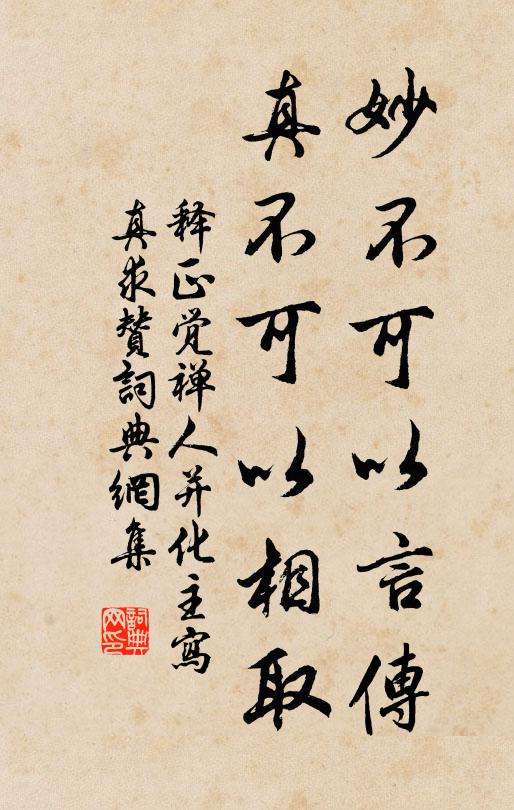 妙不可以言傳
真不可以相取
释正觉禅人并化主寫
真求贊詞典網集
詞典网印